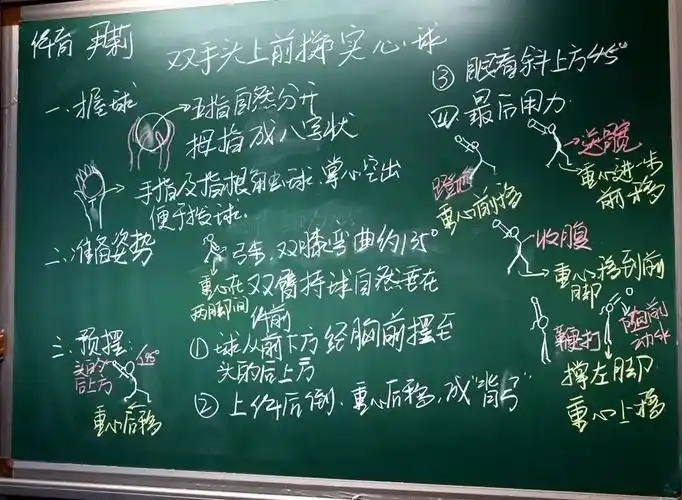 体育
双手头上前掷实心球
一、握球
五指自然分开
拇指成八字状
手指及指根触球、掌心空出
便于投球.
二、准备姿势
弓步，双膝弯曲约135°
重心在
两脚间
双臂持球自然垂在
体前
三、预摆：
头的
后上方
45°
重心后移
① 球从前下方经胸前摆至
头的后上方
② 上体后倒、重心后移，成"背弓"
③ 眼看斜上方45°
四、最后用力
重心前移
送髋
重心进一步
前移
收腹
重心移到前
脚
鞭打
胸前
撑左脚
重心上移